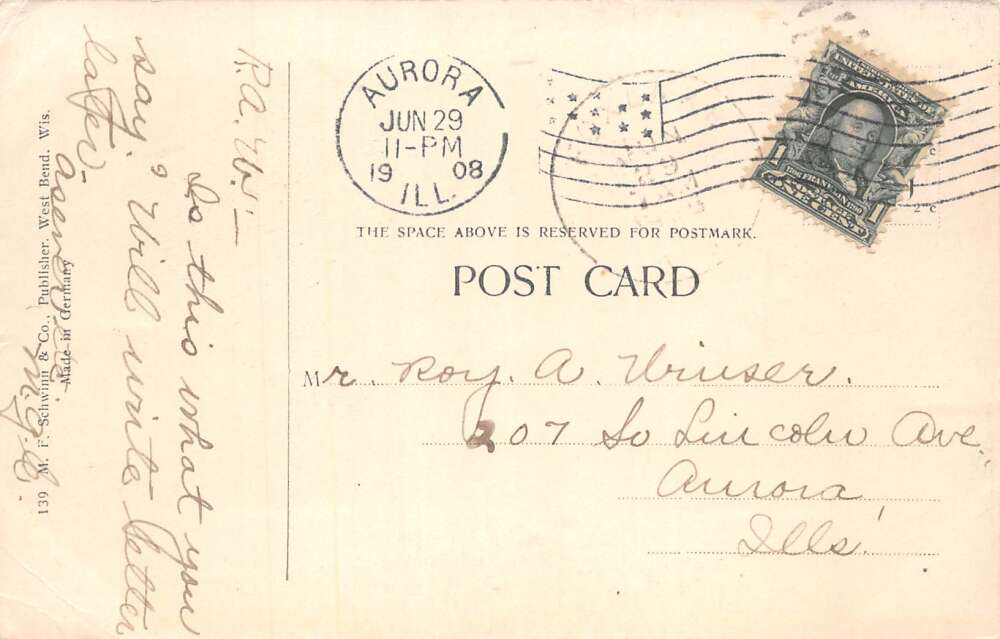 AURORA
JUN 29
11-PM
19 08
ILL.
UNITED STATES OF
AMERICA
1 1
ONE CENT
THE SPACE ABOVE IS RESERVED FOR POSTMARK.
POST CARD
Mr. Roy. A.
207 So Lincoln Ave.,
Aurora,
Ills.
R.A.W.—
Is this what you
say. "Will write letter
later—
139 M. F. Schwinn & Co., Publisher, West Bend, Wis.
Made in Germany